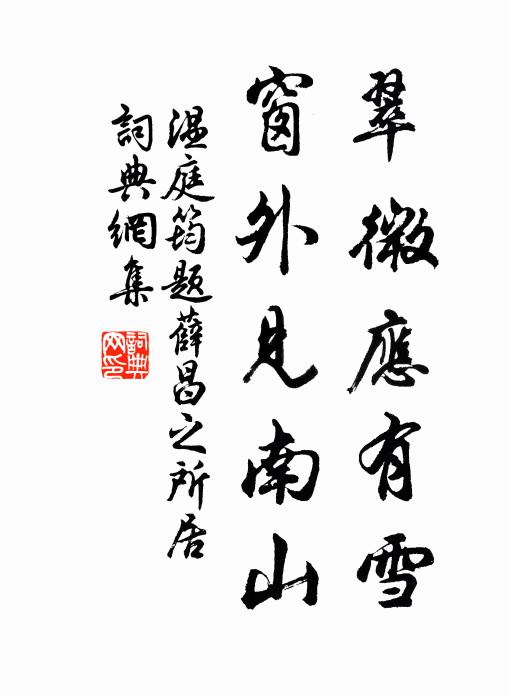 翠微應有雪
窗外見南山
温庭筠题薛昌之所居
詞典網集
詞典网印